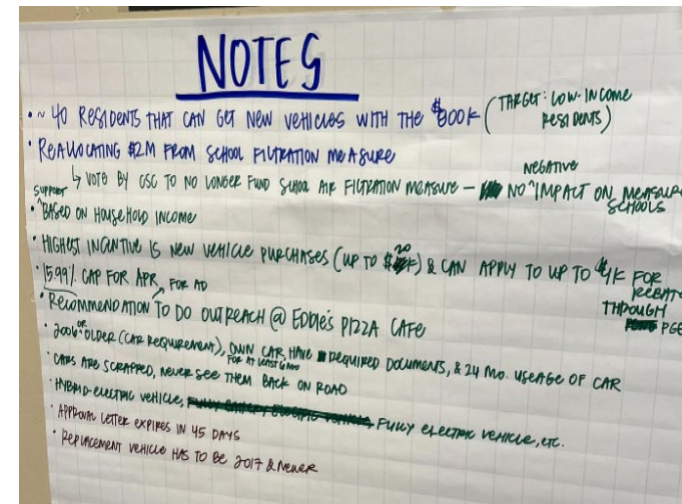 NOTES
• ~ 40 RESIDENTS THAT CAN GET NEW VEHICLES WITH THE $800K (TARGET: LOW-INCOME
RESIDENTS)
• REALLOCATING $2M FROM SCHOOL FILTRATION MEASURE
↳ VOTE BY CSC TO NO LONGER FUND SCHOOL AIR FILTRATION MEASURE – NO ^NEGATIVE IMPACT ON MEASURE
SCHOOLS
• ^SUPPORT BASED ON HOUSEHOLD INCOME
• HIGHEST INCENTIVE IS NEW VEHICLE PURCHASES (UP TO $20K) & CAN APPLY TO UP TO $4K FOR
REBATE
THROUGH
PGE
• 15.99% CAP FOR APR, FOR AD
• RECOMMENDATION TO DO OUTREACH @ EDDIE'S PIZZA CAFE
• 2006 OR OLDER (CAR REQUIREMENT), OWN CAR, FOR AT LEAST HAVE REQUIRED DOCUMENTS, & 24 MO. USEAGE OF CAR
• CARS ARE SCRAPPED, NEVER SEE THEM BACK ON ROAD
• HYBRID-ELECTRIC VEHICLE, FULLY ELECTRIC VEHICLE, ETC.
• APPROVAL LETTER EXPIRES IN 45 DAYS
• REPLACEMENT VEHICLE HAS TO BE 2017 & NEWER